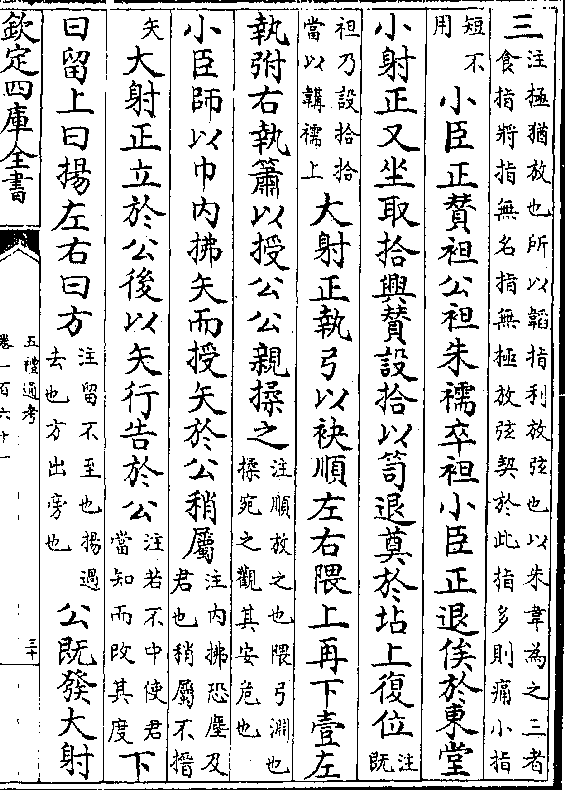 三注極猶放也所以韜指利放弦也以朱韋為之三者食指將指無名指無極放弦契於此指多則痛小指
短不用小臣正贊袒公袒朱襦卒袒小臣正退俟於東堂
小射正又坐取拾興贊設拾以笥退奠於坫上復位注既
袒乃設拾拾當以韝襦上大射正執弓以袂順左右隈上再下壹左
執弣右執簫以授公公親揉之注順放之也隈弓淵也揉宛之觀其安危也
小臣師以巾内拂矢而授矢於公稍屬注内拂恐塵及君也稍屬不搢
矢大射正立於公後以矢行告於公注若不中使君當知而改其度下
曰留上曰揚左右曰方注留不至也揚過去也方出旁也公既發大射
欽定四庫全書
五禮通考
卷一百六十一
三十